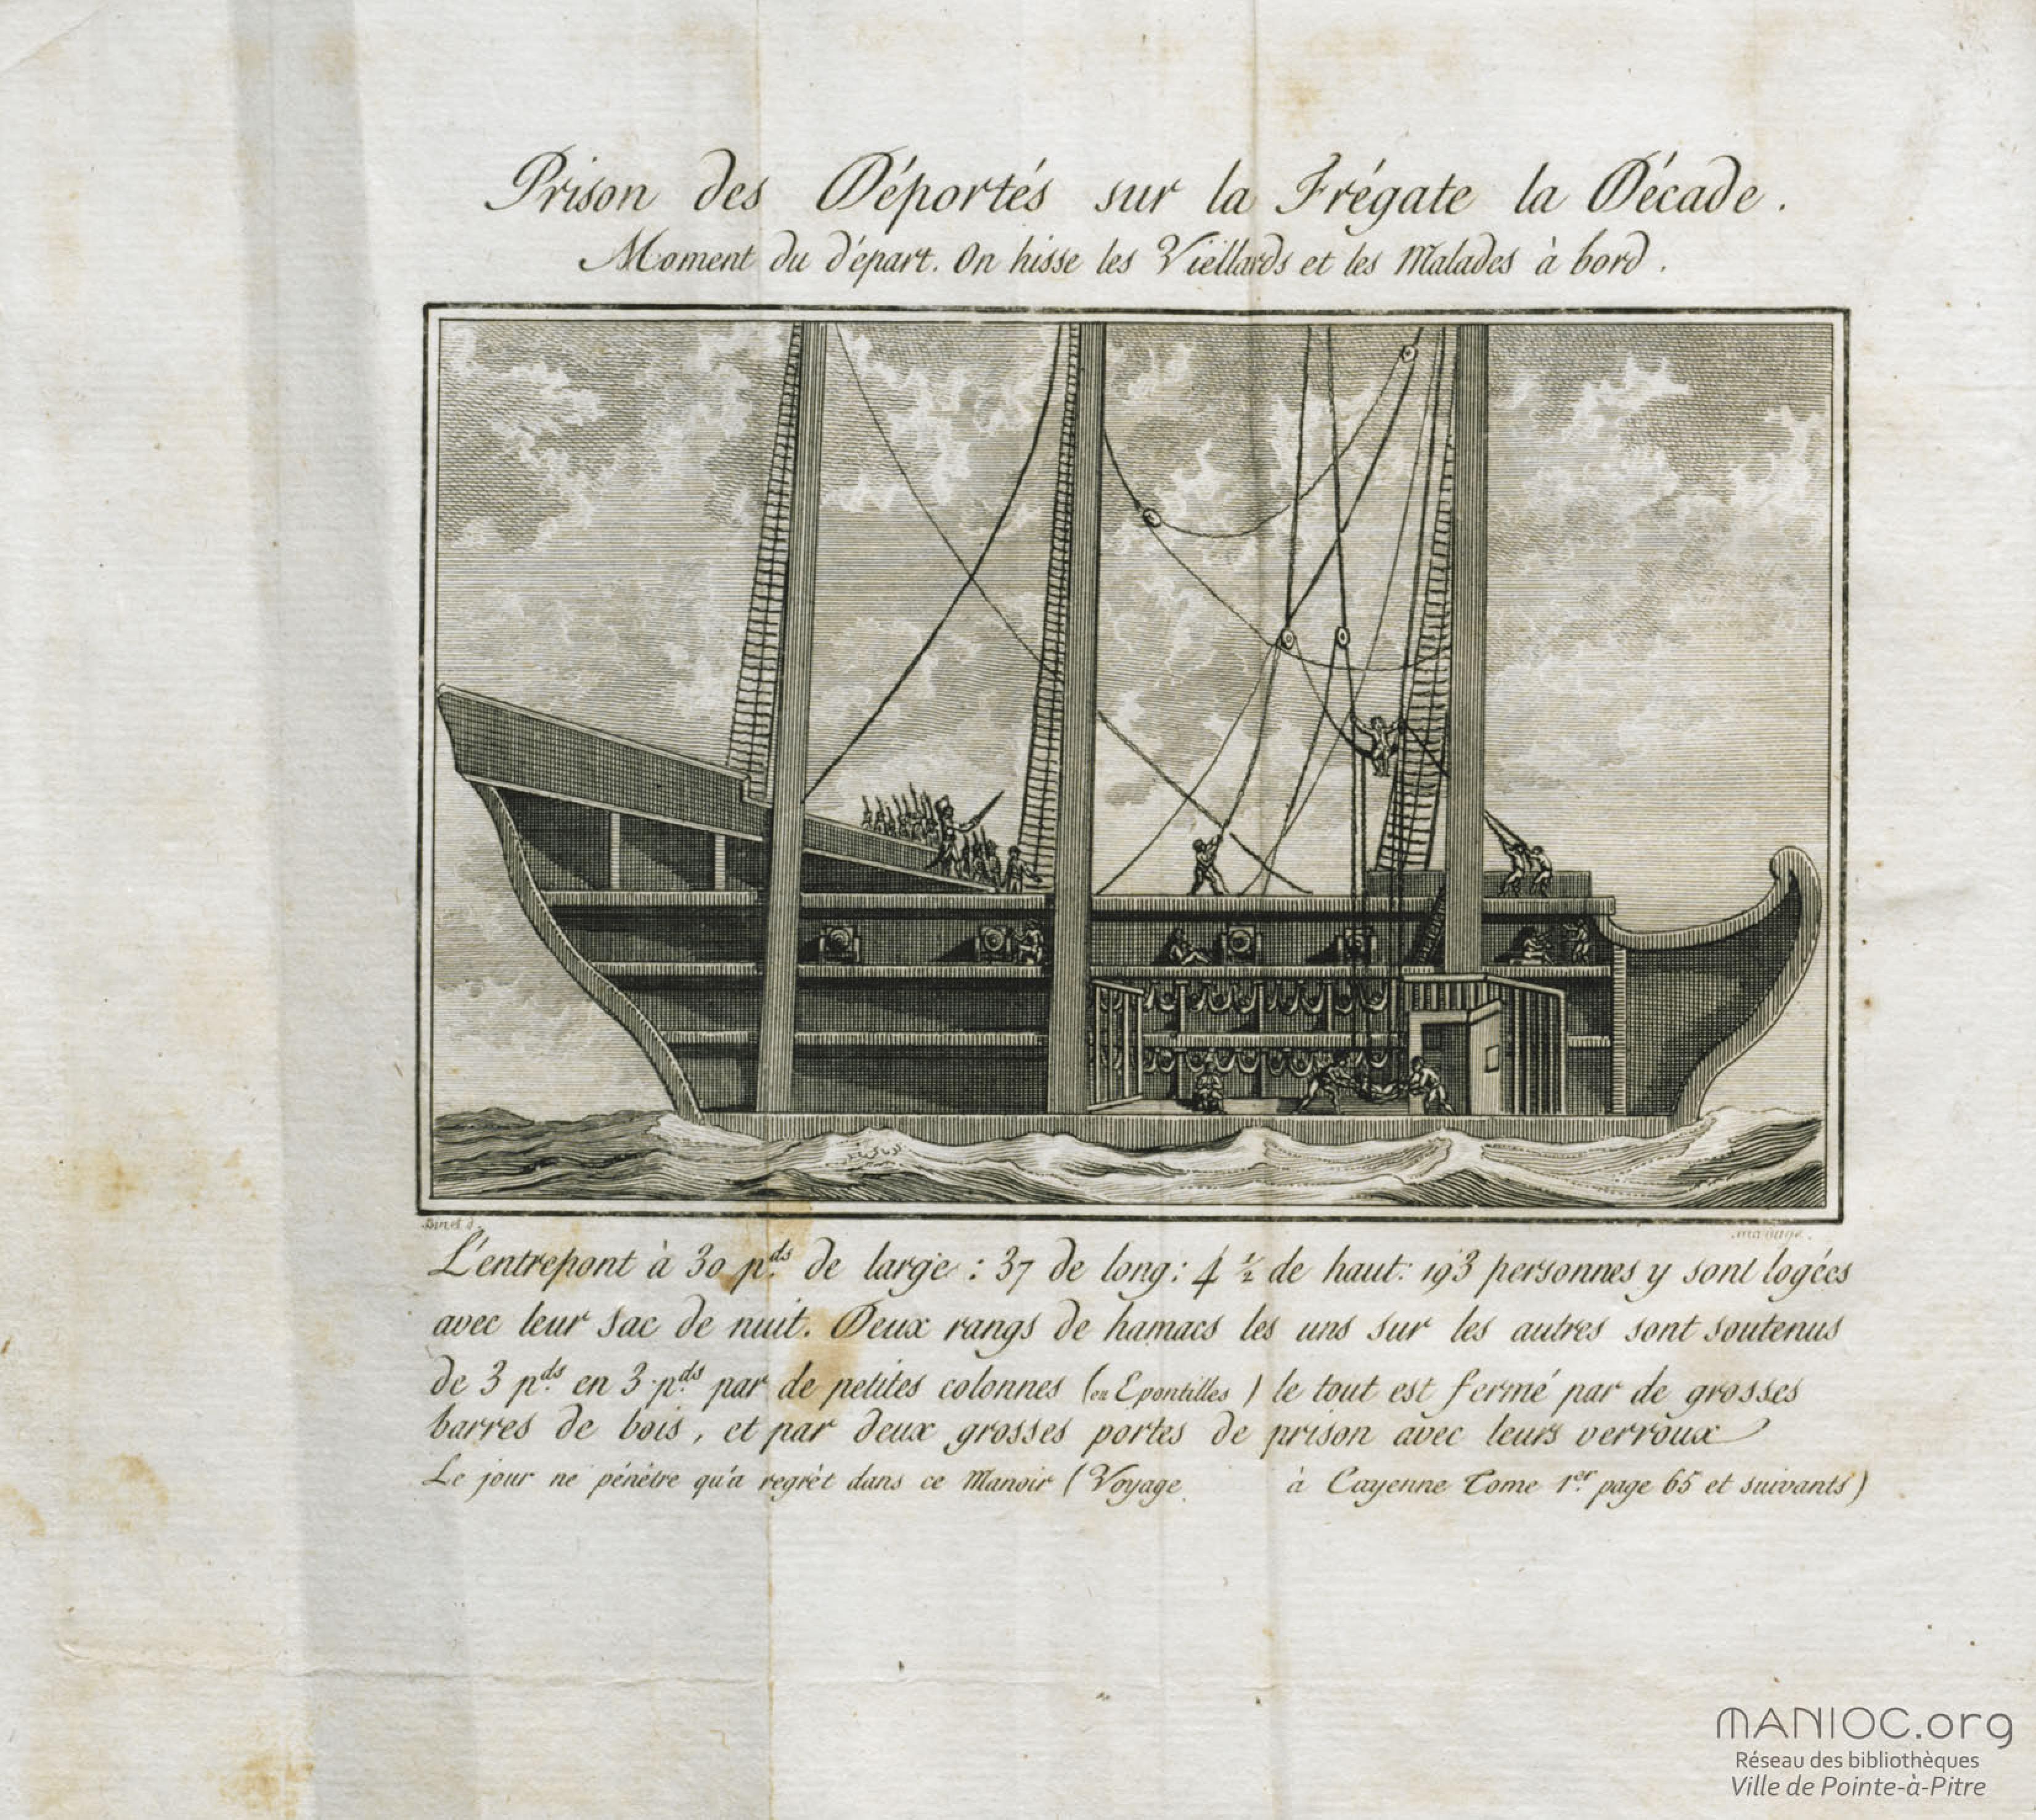 Prison des Déportés sur la Frégate la Décade.
Moment du départ. On hisse les Viëllards et les Malades à bord.
Binet d.
L'entrepont à 30 p.ds de large : 37 de long : 4 ½ de haut : 193 personnes y sont logées
avec leur sac de nuit. Deux rangs de hamacs les uns sur les autres sont soutenus
de 3 p.ds en 3 p.ds par de petites colonnes (ou Epontilles) le tout est fermé par de grosses
barres de bois, et par deux grosses portes de prison avec leurs verroux
Le jour ne pénètre qu'a regrèt dans ce Manoir (Voyage à Cayenne Tome 1.er page 65 et suivants)
MANIOC.org
Réseau des bibliothèques
Ville de Pointe-à-Pitre